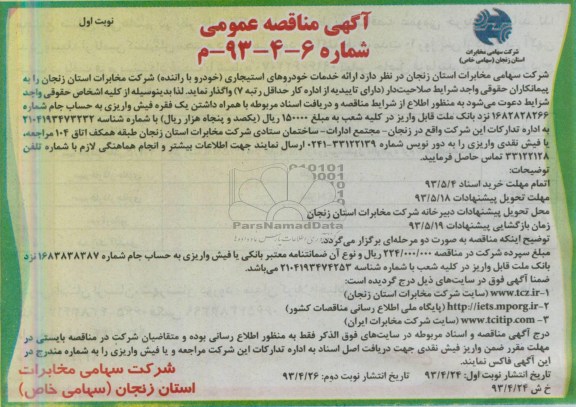 نوبت اول
آگهی مناقصه عمومی
شماره ۶-۴-۹۳-م
شرکت سهامی مخابرات
استان زنجان (سهامی خاص)
شرکت سهامی مخابرات استان زنجان در نظر دارد ارائه خدمات خودروهای استیجاری (خودرو با راننده) شرکت مخابرات استان زنجان را به
پیمانکاران حقوقی واجد شرایط صلاحیت‌دار (دارای تاییدیه از اداره کار حداقل رتبه ۷) واگذار نماید. لذا بدینوسیله از کلیه اشخاص حقوقی واجد
شرایط دعوت می‌شود به منظور اطلاع از شرایط مناقصه و دریافت اسناد مربوطه با همراه داشتن یک فقره فیش واریزی به حساب جام شماره
۱۶۸۲۸۲۸۲۶۶ نزد بانک ملت قابل واریز در کلیه شعب به مبلغ ۱۵۰۰۰۰ ریال (یکصد و پنجاه هزار ریال) با شماره شناسه ۲۱۰۴۱۹۳۴۷۳۲۳۲
به اداره تدارکات این شرکت واقع در زنجان- مجتمع ادارات- ساختمان ستادی شرکت مخابرات استان زنجان طبقه همکف اتاق ۱۰۴ مراجعه،
یا فیش نقدی واریزی را به دور نویس شماره ۳۳۱۲۲۱۳۹-۰۲۴۱ ارسال نمایند جهت اطلاعات بیشتر و انجام هماهنگی لازم با شماره تلفن
۳۳۱۲۲۱۲۸ تماس حاصل فرمایید.
توضیحات:
اتمام مهلت خرید اسناد ۹۳/۵/۴
مهلت تحویل پیشنهادات به ۹۳/۵/۱۸
محل تحویل پیشنهادات دبیرخانه شرکت مخابرات استان زنجان
زمان بازگشایی پیشنهادات ۹۳/۵/۱۹
توضیح اینکه مناقصه به صورت دو مرحله‌ای برگزار می‌گردد.
مبلغ سپرده شرکت در مناقصه ۲۲۴/۰۰۰/۰۰۰ ریال و نوع آن ضمانتنامه معتبر بانکی یا فیش واریزی به حساب جام شماره ۱۶۸۳۸۳۸۳۸۷ نزد
بانک ملت قابل واریز در کلیه شعب با شماره شناسه ۲۱۰۴۱۹۳۴۷۴۲۵۳ می‌باشد.
ضمنا آگهی فوق در سایت‌های ذیل درج گردیده است:
۱-www.tcz.ir (سایت شرکت مخابرات استان زنجان)
۲-http://iets.mporg.ir (پایگاه ملی اطلاع رسانی مناقصات کشور)
۳- www.tcitip.com (سایت شرکت مخابرات ایران)
درج آگهی مناقصه و اسناد مربوطه در سایت‌های فوق الذکر فقط به منظور اطلاع رسانی بوده و متقاضیان شرکت در مناقصه بایستی در
مهلت مقرر ضمن واریز فیش نقدی جهت دریافت اصل اسناد به اداره تدارکات این شرکت مراجعه و یا فیش واریزی را به شماره مندرج در
این آگهی فاکس نمایند.
تاریخ انتشار نوبت اول: ۹۳/۴/۲۴ تاریخ انتشار نوبت دوم: ۹۳/۴/۲۶
خ ش ۹۳/۴/۲۴
شرکت سهامی مخابرات
استان زنجان (سهامی خاص)
ParsNamadData